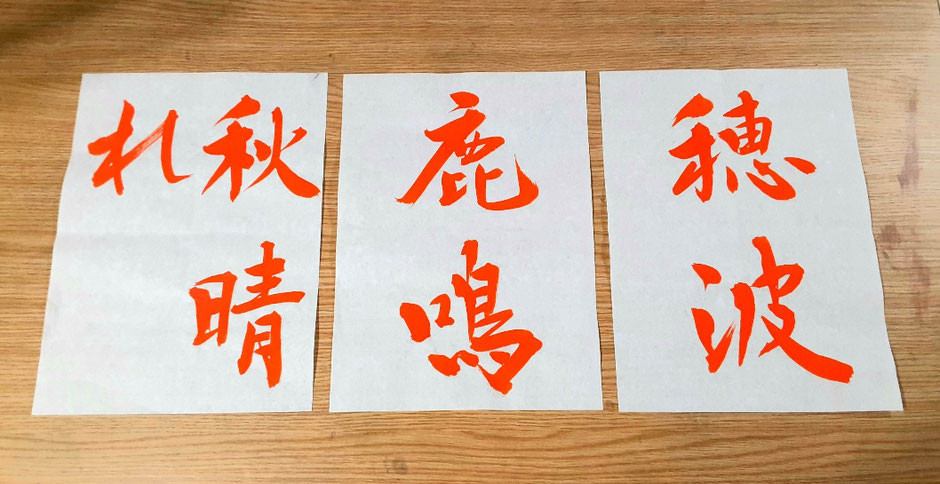 穂波
鹿鳴
秋晴
れ